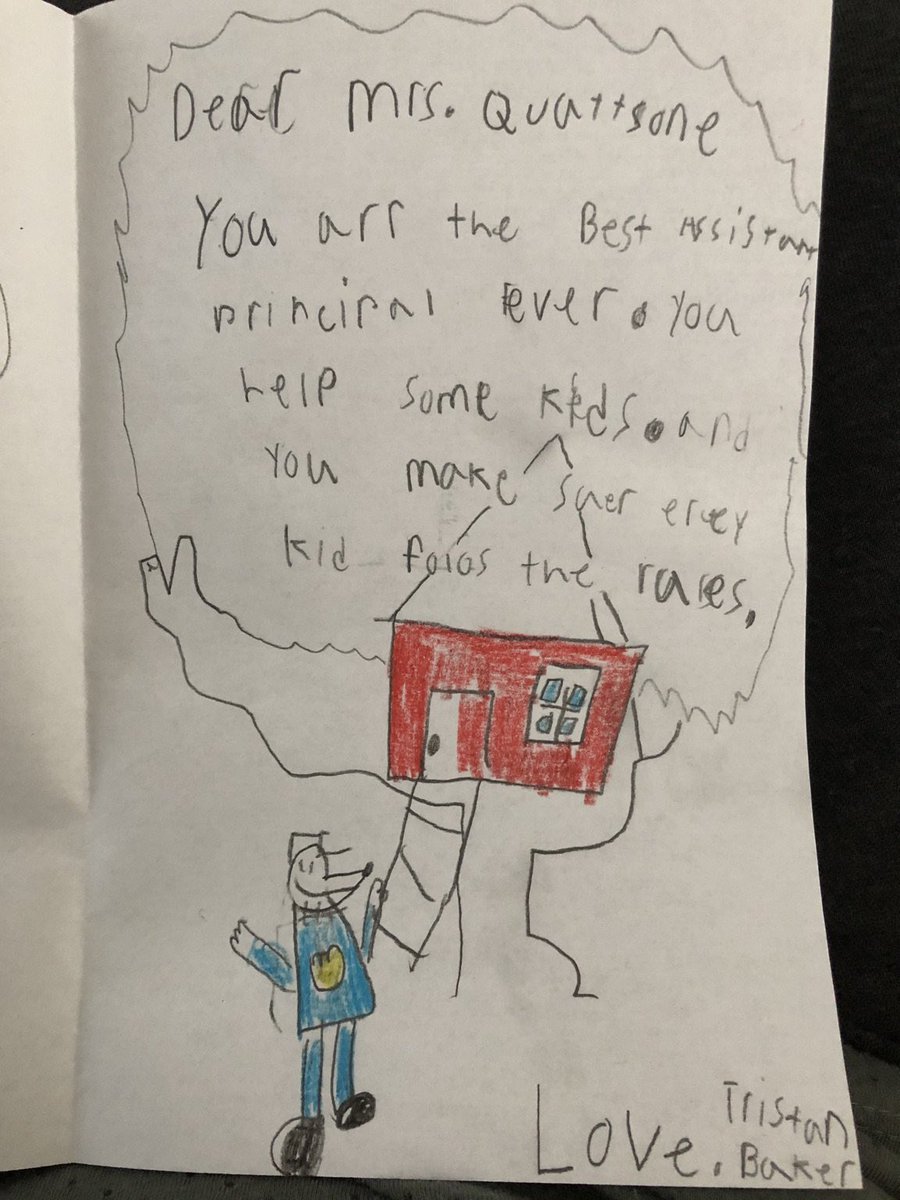 Dear Mrs. Quattsone
You arr the Best Assistant
principal Ever. You
help some kids. and
You make suer erуey
kid folos the rares.
Love. Tristan
Baker